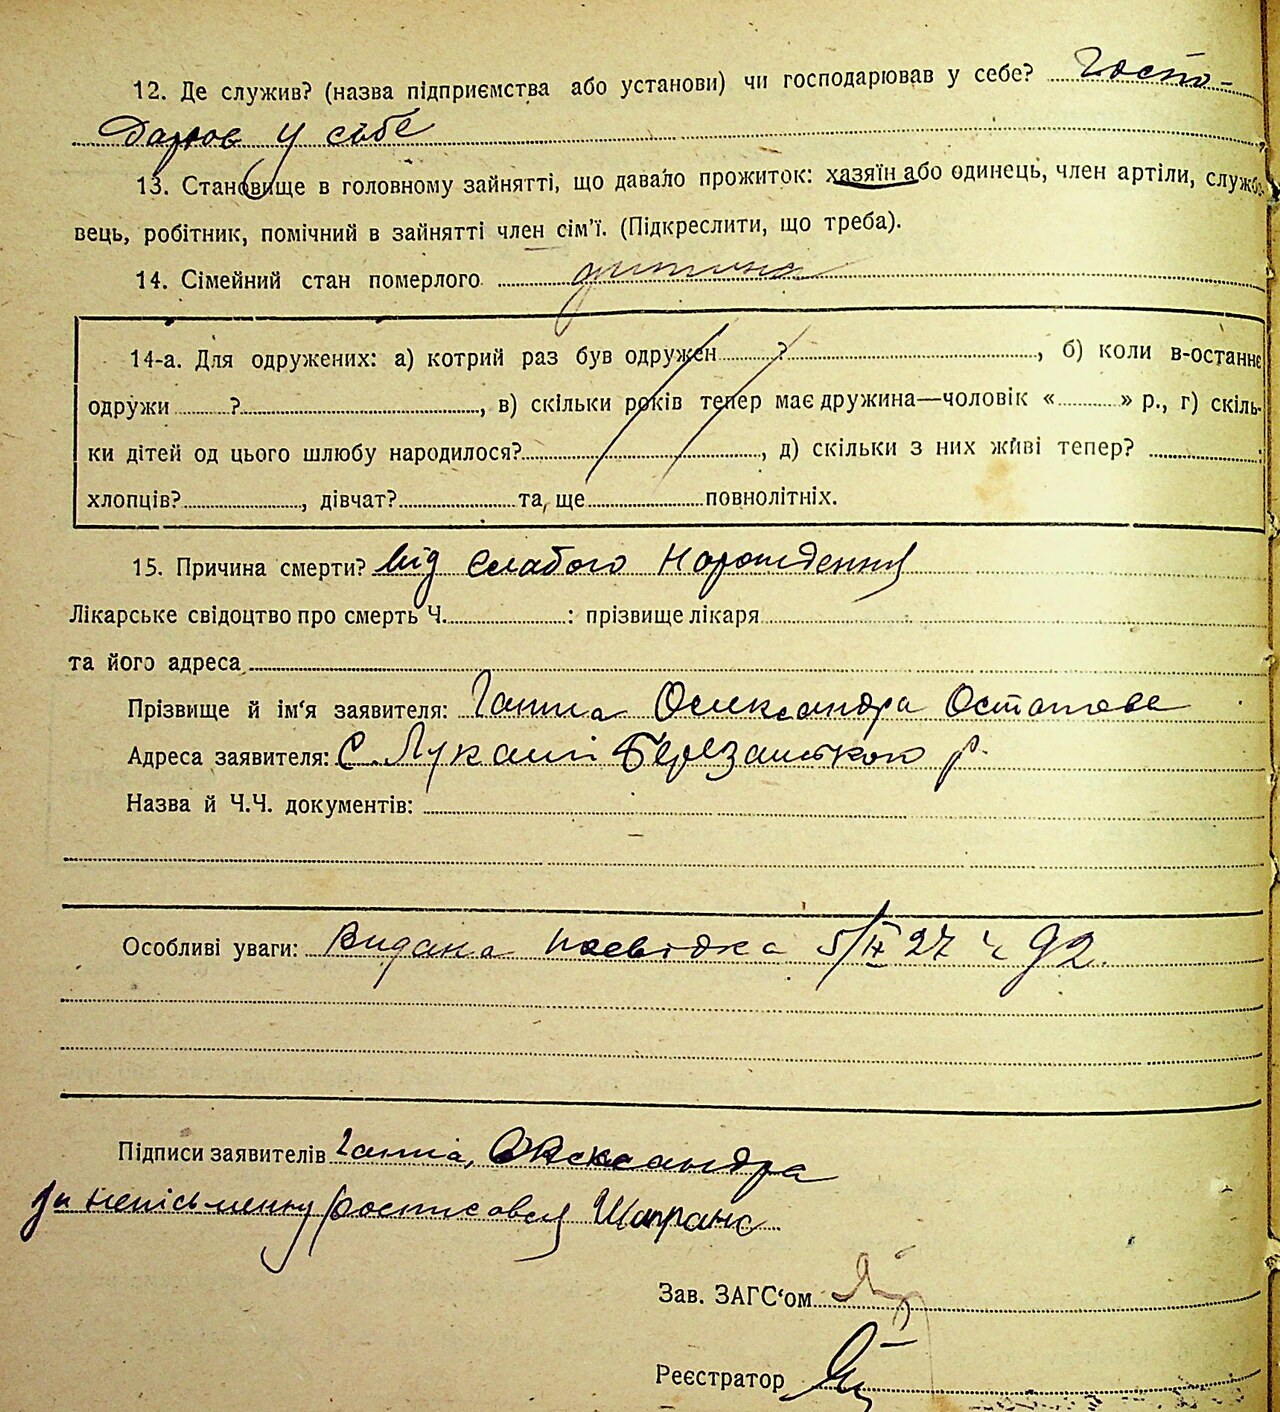 12. Де служив? (назва підприємства або установи) чи господарював у себе? Госпо-
дарюв у сібе
13. Становище в головному зайнятті, що давало прожиток: хазяїн або одинець, член артіли, службо-
вець, робітник, помічний в зайнятті член сім'ї. (Підкреслити, що треба).
14. Сімейний стан померлого дитина
14-а. Для одружених: а) котрий раз був одружен ? , б) коли в-останнє
одружи ? , в) скільки років тепер має дружина—чоловік « » р., г) скіль-
ки дітей од цього шлюбу народилося? , д) скільки з них живі тепер? :
хлопців? , дівчат? та, ще повнолітніх.
15. Причина смерти? Від слабого нарождения
Лікарське свідоцтво про смерть Ч. : прізвище лікаря
та його адреса
Прізвище й ім'я заявителя: Ганна Олександра
Адреса заявителя: С. Лукаші Березанського р.
Назва й Ч.Ч. документів:
Особливі уваги: Видана посвідка 5/IX 27 ч 92.
Підписи заявителів Ганна, Олександра
за непісьменну росписався
Зав. ЗАГС'ом
Реєстратор